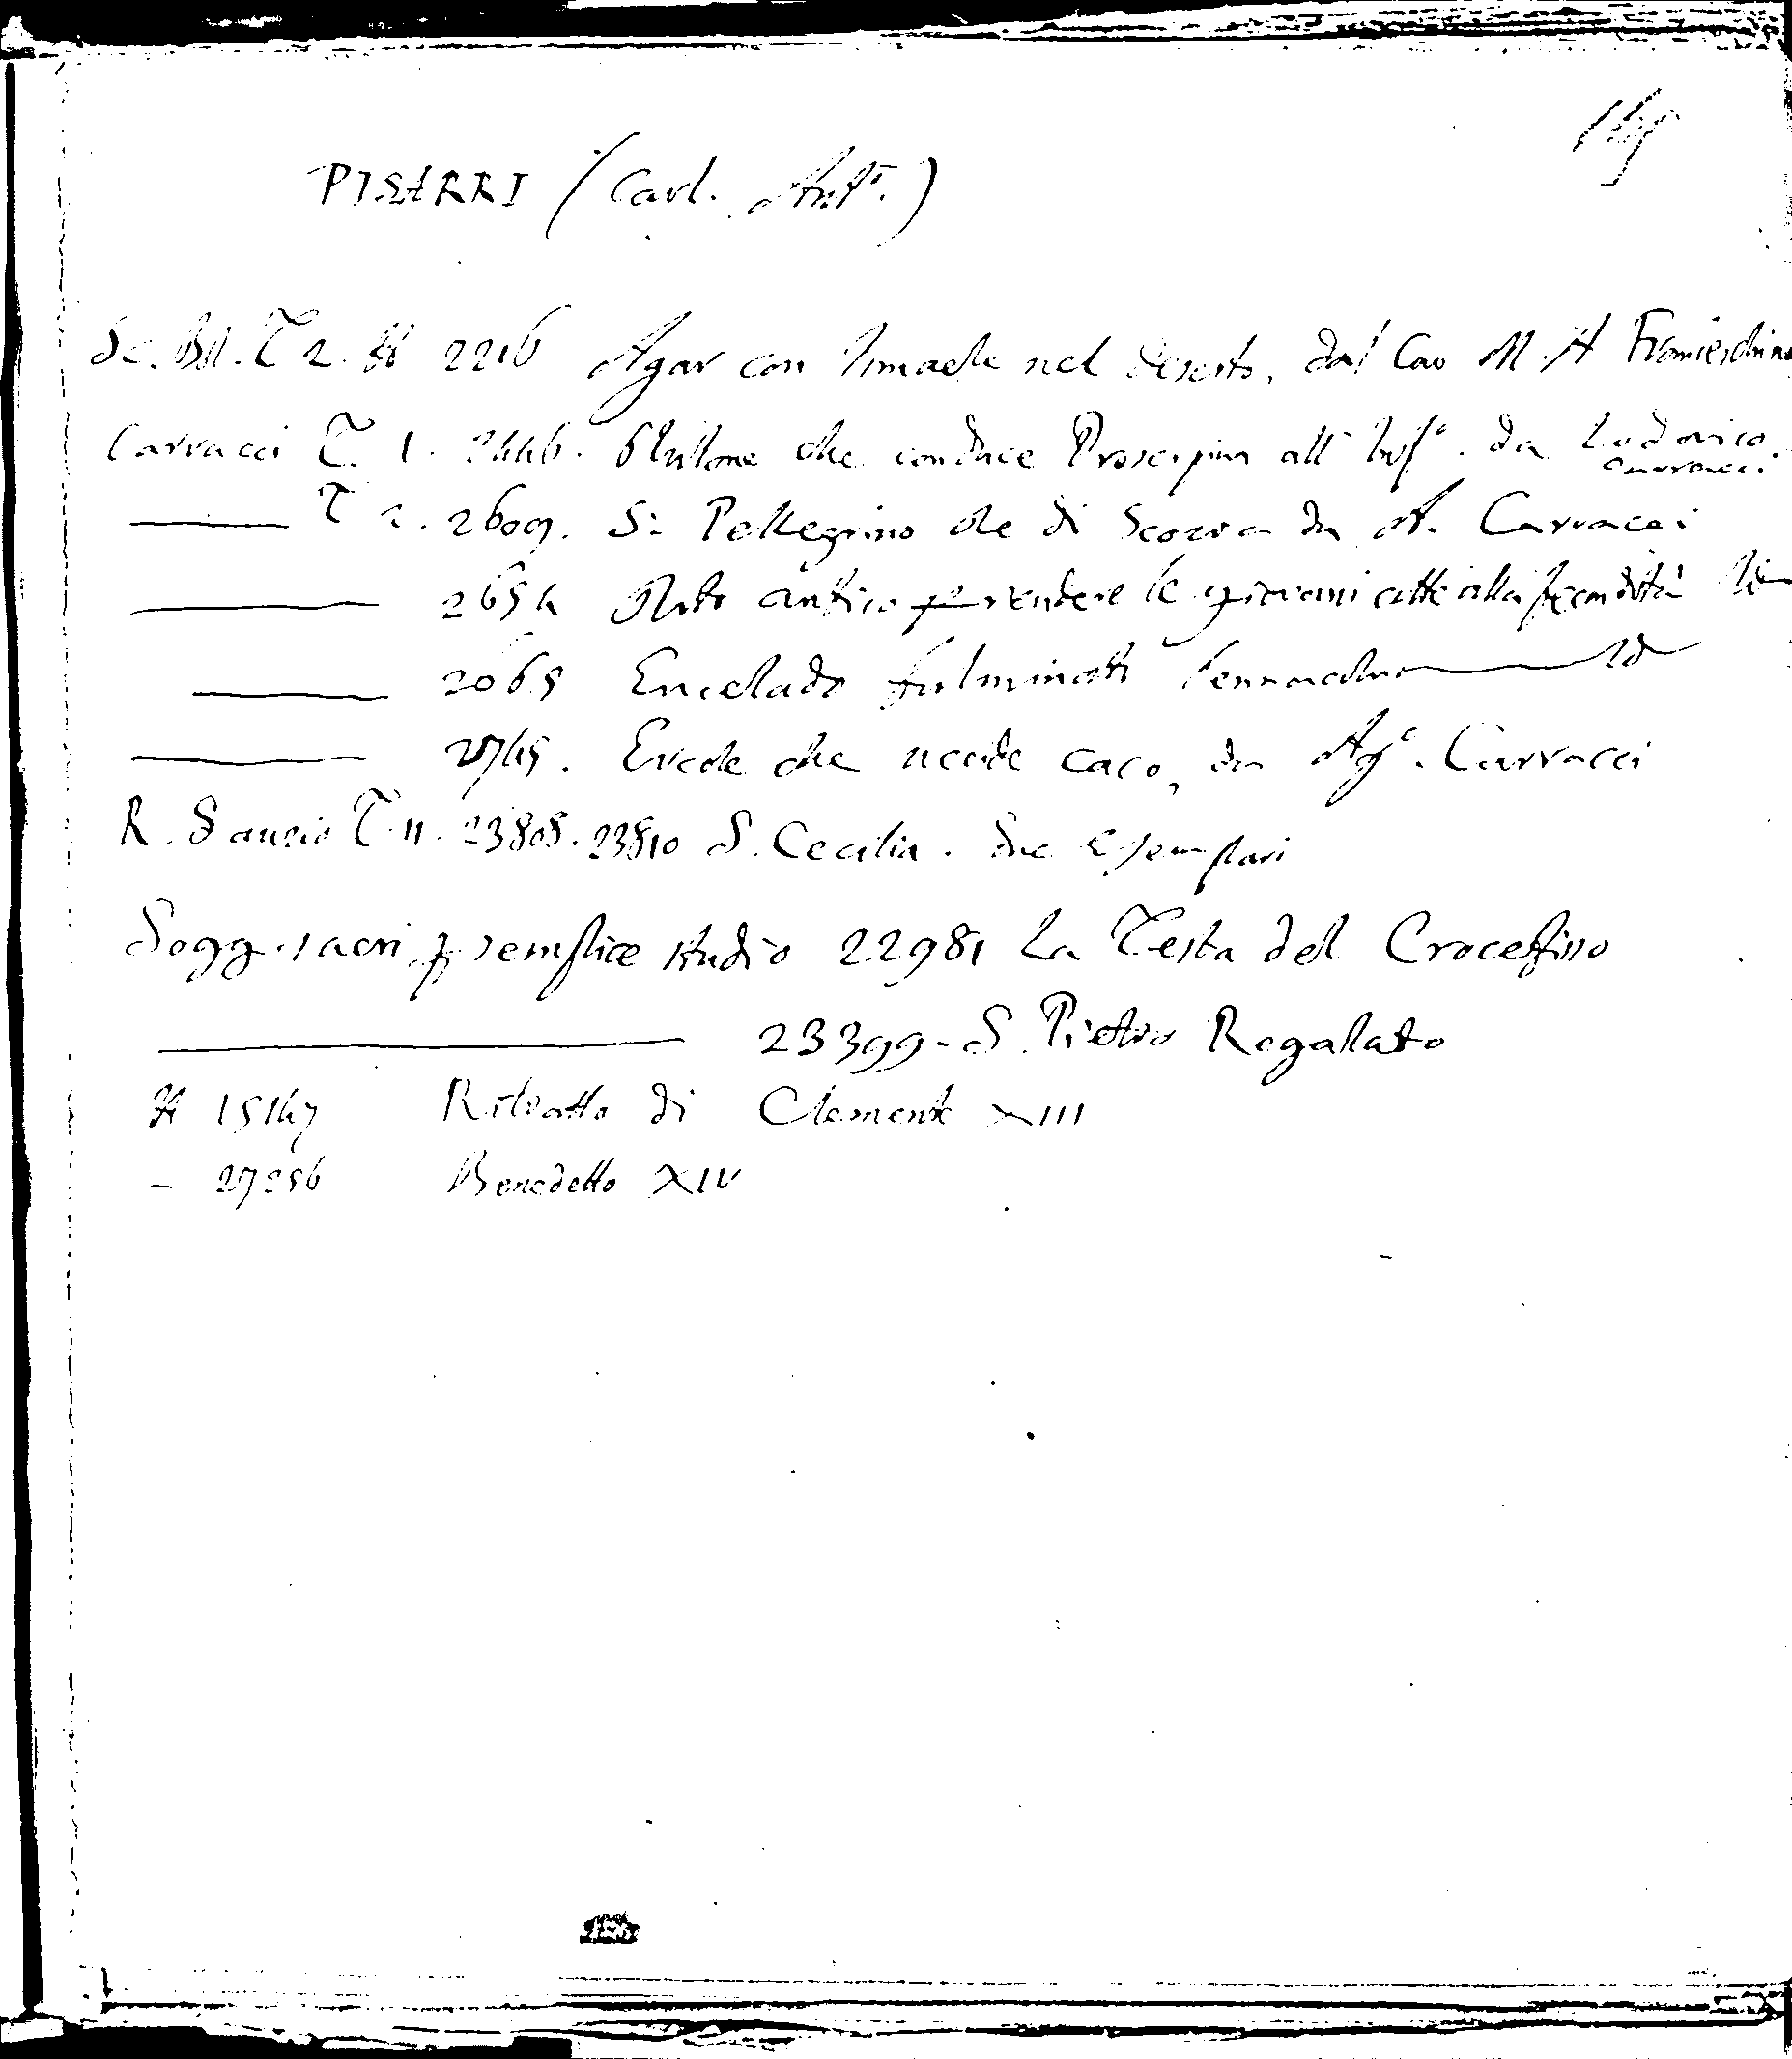 PISARRI (Carl. Ant.º)
Sc. Bol. T 2. # 2216 Agar con Ismaele nel deserto, dal Cav M. A Franceschino
Carracci T. 1. 2446. Plutone che conduce Proserpina all' Infº. da Ludovico Carracci.
T 2. 2609. S. Pellegrino che di Scozia da A. Carracci
2654 Rito antico p rendere le giovani atte alla fecondità id
2065 Encelado fulminato id
2745. Ercole che uccide Caco, da Agº. Carracci
R. Sanzio T. 11. 23808. 23810 S. Cecilia. due esemplari
Sogg. sacri p semplice studio 22981 La Testa del Crocefisso
23399 - S. Pietro Regallato
# 15147 Ritratto di Clemente XIII
- 27256 Benedetto XIV